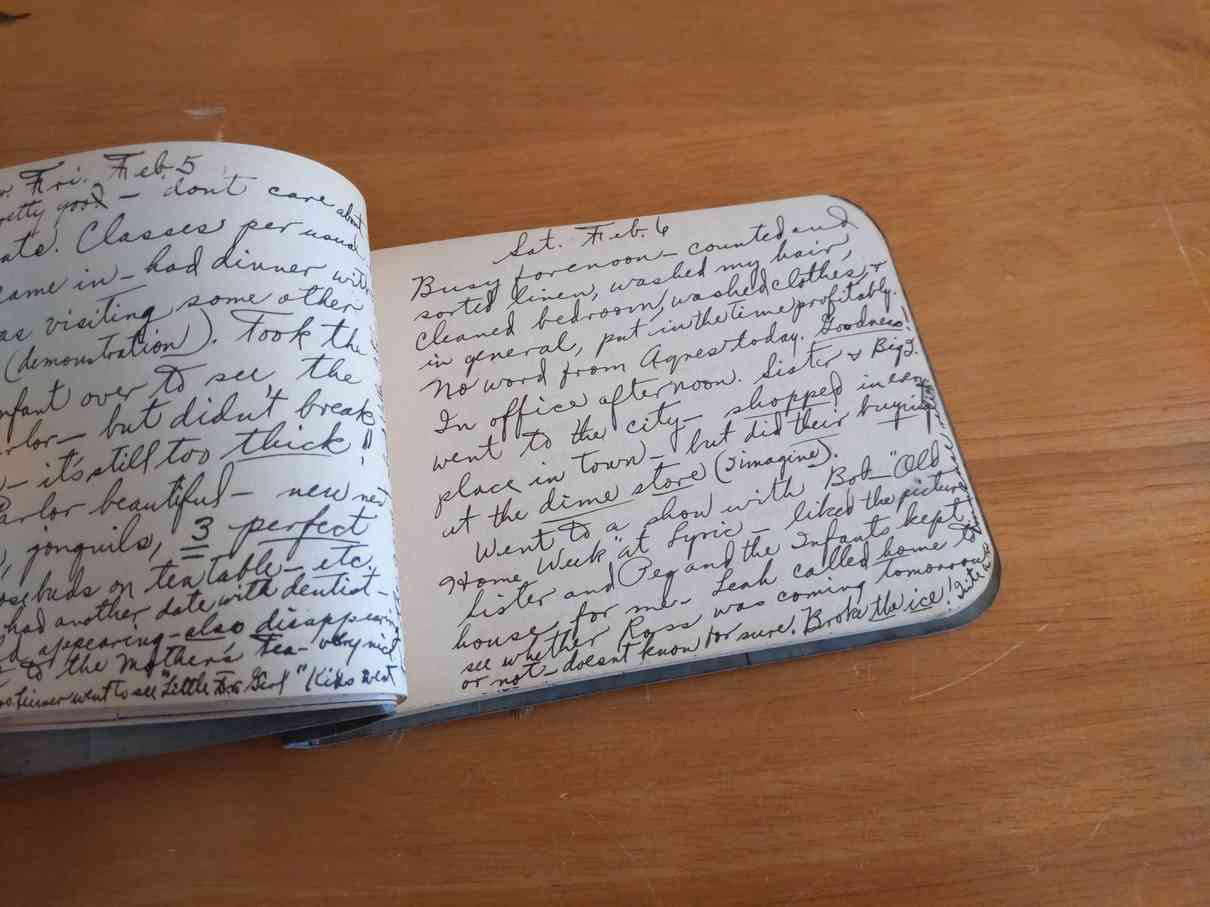 Fri. Feb. 5
pretty good – dont care about
Classes per usual
came in – had dinner with
as visiting some other
(demonstration). Took the
nfant over to see, the
rlor – but didn't break
– it's still too thick!
Parlor beautiful – new
jonquils, 3 perfect
osebuds on tea table – etc.
had another date with dentist –
appearing – also disappearing
to the Mother's Tea – very nice
went to see "Little Girl" Kids went
Sat. Feb. 6
Busy forenoon – counted and
sorted linen, washed my hair,
cleaned bedroom, washed clothes, &
in general, put in the time profitably.
No word from Agnes today. Goodness!
In office afternoon. Sister & Big J.
went to the city – shopped in every
place in town – but did their buying
at the dime store (I imagine).
Went to a show with Bob – "Old
Home Week" at Lyric – liked the picture
Sister and Peg and the Infants kept
house for me – Leah called home to
see whether Ross was coming tomorrow
or not – doesnt know for sure. Broke the ice!